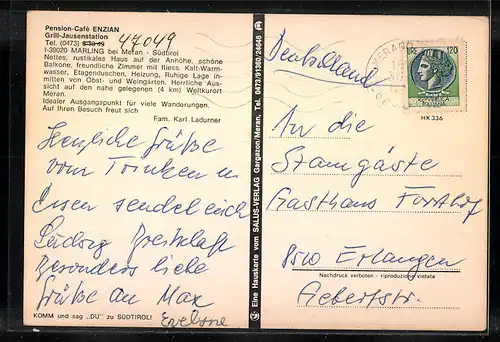 Pension-Café ENZIAN
Grill-Jausenstation
Tel. (0473) 47049
I-39020 MARLING bei Meran - Südtirol
Nettes, rustikales Haus auf der Anhöhe, schöne
Balkone, freundliche Zimmer mit fliess. Kalt-Warm-
wasser, Etagenduschen, Heizung, Ruhige Lage in-
mitten von Obst- und Weingärten. Herrliche Aus-
sicht auf den nahe gelegenen (4 km) Weltkurort
Meran.
Idealer Ausgangspunkt für viele Wanderungen.
Auf Ihren Besuch freut sich
Fam. Karl Ladurner
Herzliche Grüße
vom Trinken u
Essen sendet euch
Ludwig
Besonders liebe
Grüße an Max
KOMM und sag „DU" zu SÜDTIROL!
Eine Hauskarte vom SALUS-VERLAG Gargazon/Meran, Tel. 0473/91360/24646
Deutschland
MERANO
LIRE 120
HK 336
In die
Stamgäste
Gasthaus
8510 Erlangen
Nachdruck verboten - riproduzione vietata